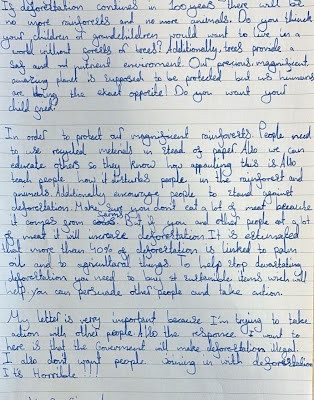 If deforestation continues in 100 years there will be
no more rainforests and no more animals. Do you think
your children & grandchildren would want to live in a
world without forests of trees? Additionally, trees provide a
safe and nutrient environment. Our precious, magnificent
amazing planet is supposed to be protected but we humans
are doing the exact opposite! Do you want your
child
In order to protect our magnificent rainforests. People need
to use recycled materials in stead of paper. Also we can
educate others so they know how appauling this is. Also
teach people how it disturbs people in the rainforest and
animals. Additionally encourage people to stand against
deforestation. Make sure you don't eat a lot of meat because
it comes from But if you and other people eat a lot
of meat it will increase deforestation. It is estimated
that more than 40% of deforestation is linked to palm
oil and to agricultural things. To help stop devastating
deforestation you need to buy sustainable items wich will
help. You can persuade other people and take action.
My letter is very important because I'm trying to take
action with other people. Also the responce I want to
here is that the Government will make deforestation illegal.
I also dont want people joining in with deforestation
It's Horrible!!!